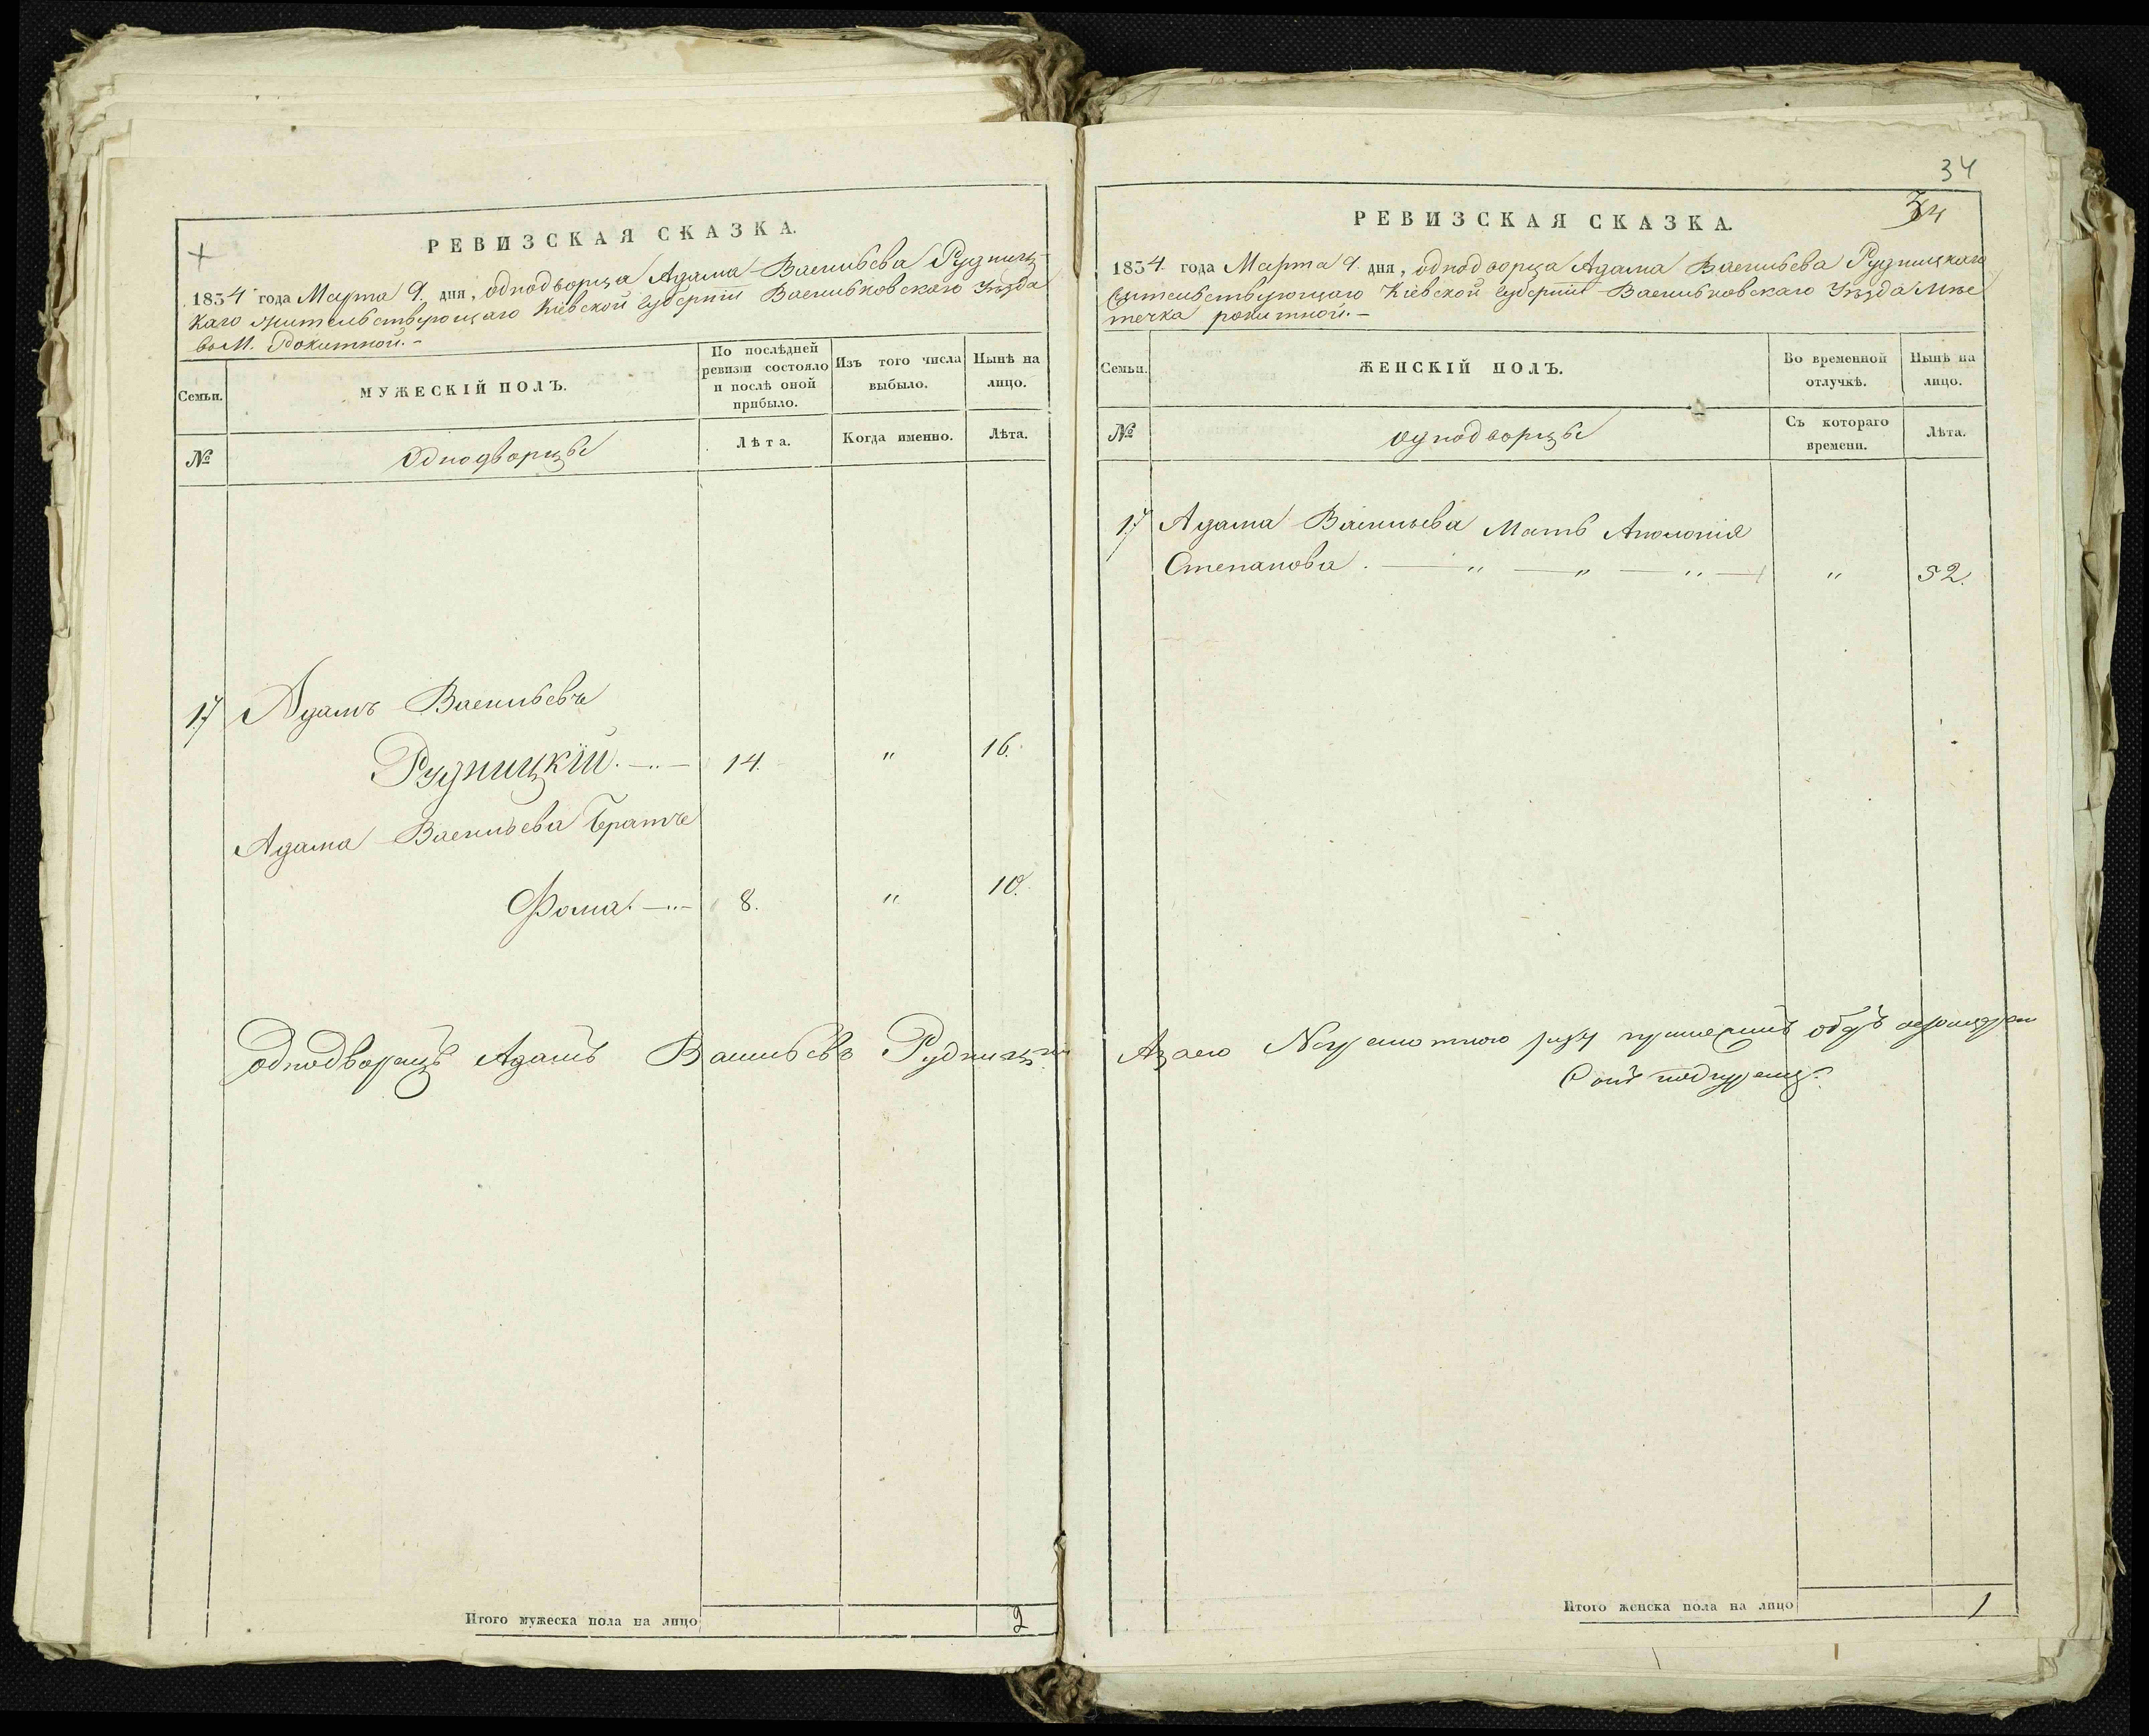 РЕВИЗСКАЯ СКАЗКА.
1834 года Марта 9. дня, однодворца Адама Васильева Рудниц-
каго жительствующаго Кіевской губерніи Васильковскаго Уѣзда
въ М. Рокитной.-
Семьи.
МУЖЕСКІЙ ПОЛЪ.
По послѣдней ревизіи состояло и послѣ оной прибыло.
Изъ того числа выбыло.
Нынѣ на лицо.
№
Однодворцы
Лѣта.
Когда именно.
Лѣта.
17 Адамъ Васильевъ
Рудницкій. 14. " 16.
Адама Васильева братъ
Фома. 8. " 10.
Однодворецъ Адамъ Васильевъ Рудницкій
Итого мужеска пола на лицо 2
34
34
РЕВИЗСКАЯ СКАЗКА.
1834 года Марта 9 дня, однодворца Адама Васильева Рудницкаго
жительствующаго Кіевской губерніи Васильковскаго Уѣзда Мѣс
течка рокитной.-
Семьи.
ЖЕНСКІЙ ПОЛЪ.
Во временной отлучкѣ.
Нынѣ на лицо.
№
однодворцы
Съ котораго времени.
Лѣта.
17 Адама Васильева Мать Аполонія
Степанова. " 52.
Итого женска пола на лицо 1